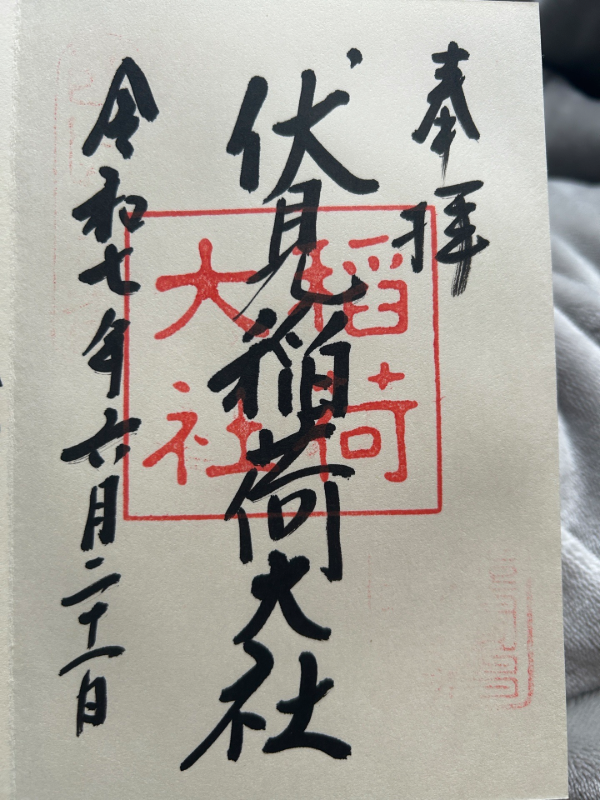 奉拝
伏見稲荷大社
稲荷
大社
令和七年六月二十一日